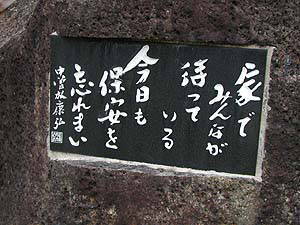 家で
みんなが
待って
いる
今日も
保安を
忘れまい
中曽根康弘